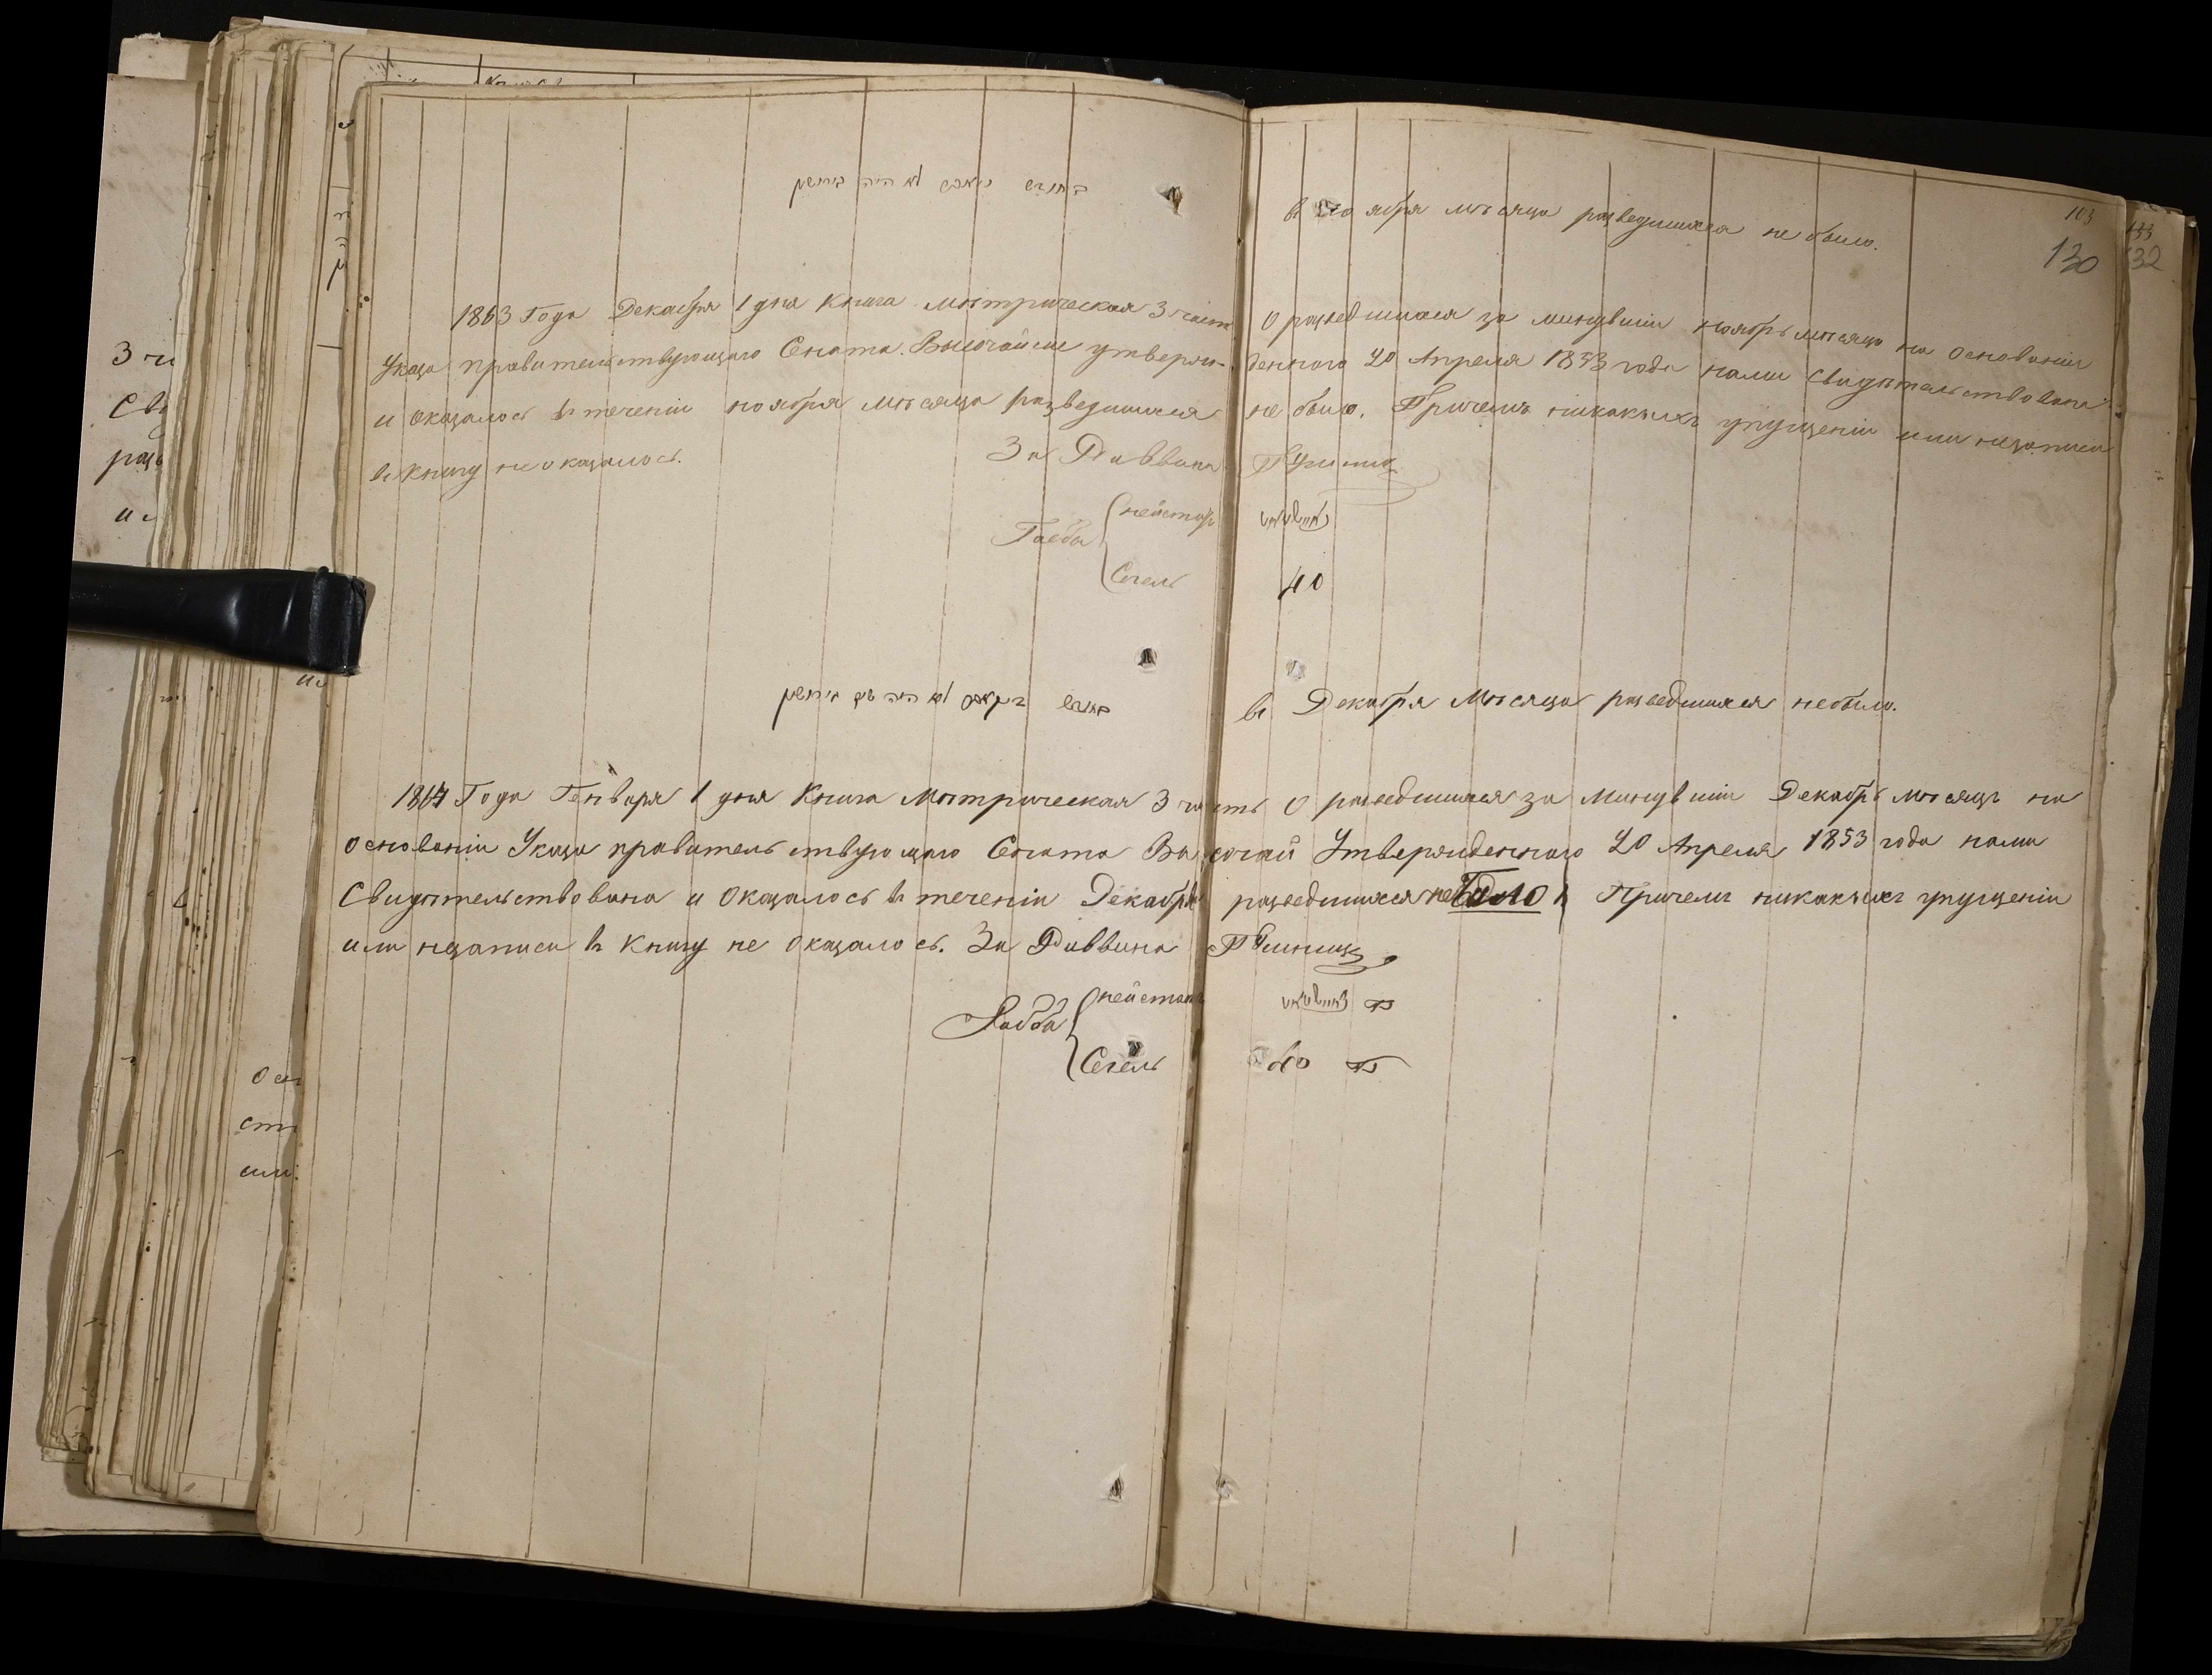 בחודש נאיאבר לא היה גירושין
въ Ноября мѣсяца разведшихся не было.
103
130
133
132
1863 Года Декабря 1 дня Книга Мѣтрическая 3 часть О разведшихся за минувшіи ноябрь мѣсяцъ на основаніи
Указа правительствующаго Сената. Высочайше утвержденного 20 Апреля 1853 года нами Свидѣтельствована
и оказалось въ теченіи ноября мѣсяца разведшихся не было. Причемъ никакихъ упущеніи или незаписи
въ книгу не оказалось. За Раввина
Габба
Сегель
בחודש דיקאבר לא היה שום גירושין
въ Декабря Мѣсяца разведшихся небыло.
1864 Года Генваря 1 дня Книга Мѣтрическая 3 часть О разведшихся за Минувшіи Декабрь мѣсяцъ на
основаніи Указа правительствующаго Сената Высочай Утвержденного 20 Апреля 1853 года нами
Свидѣтельствована и Оказалось въ теченіи Декабря разведшихся не было Причемъ никакихъ упущеніи
или незаписи въ Книгу не Оказалось. За Раввина
Габба
Сегель